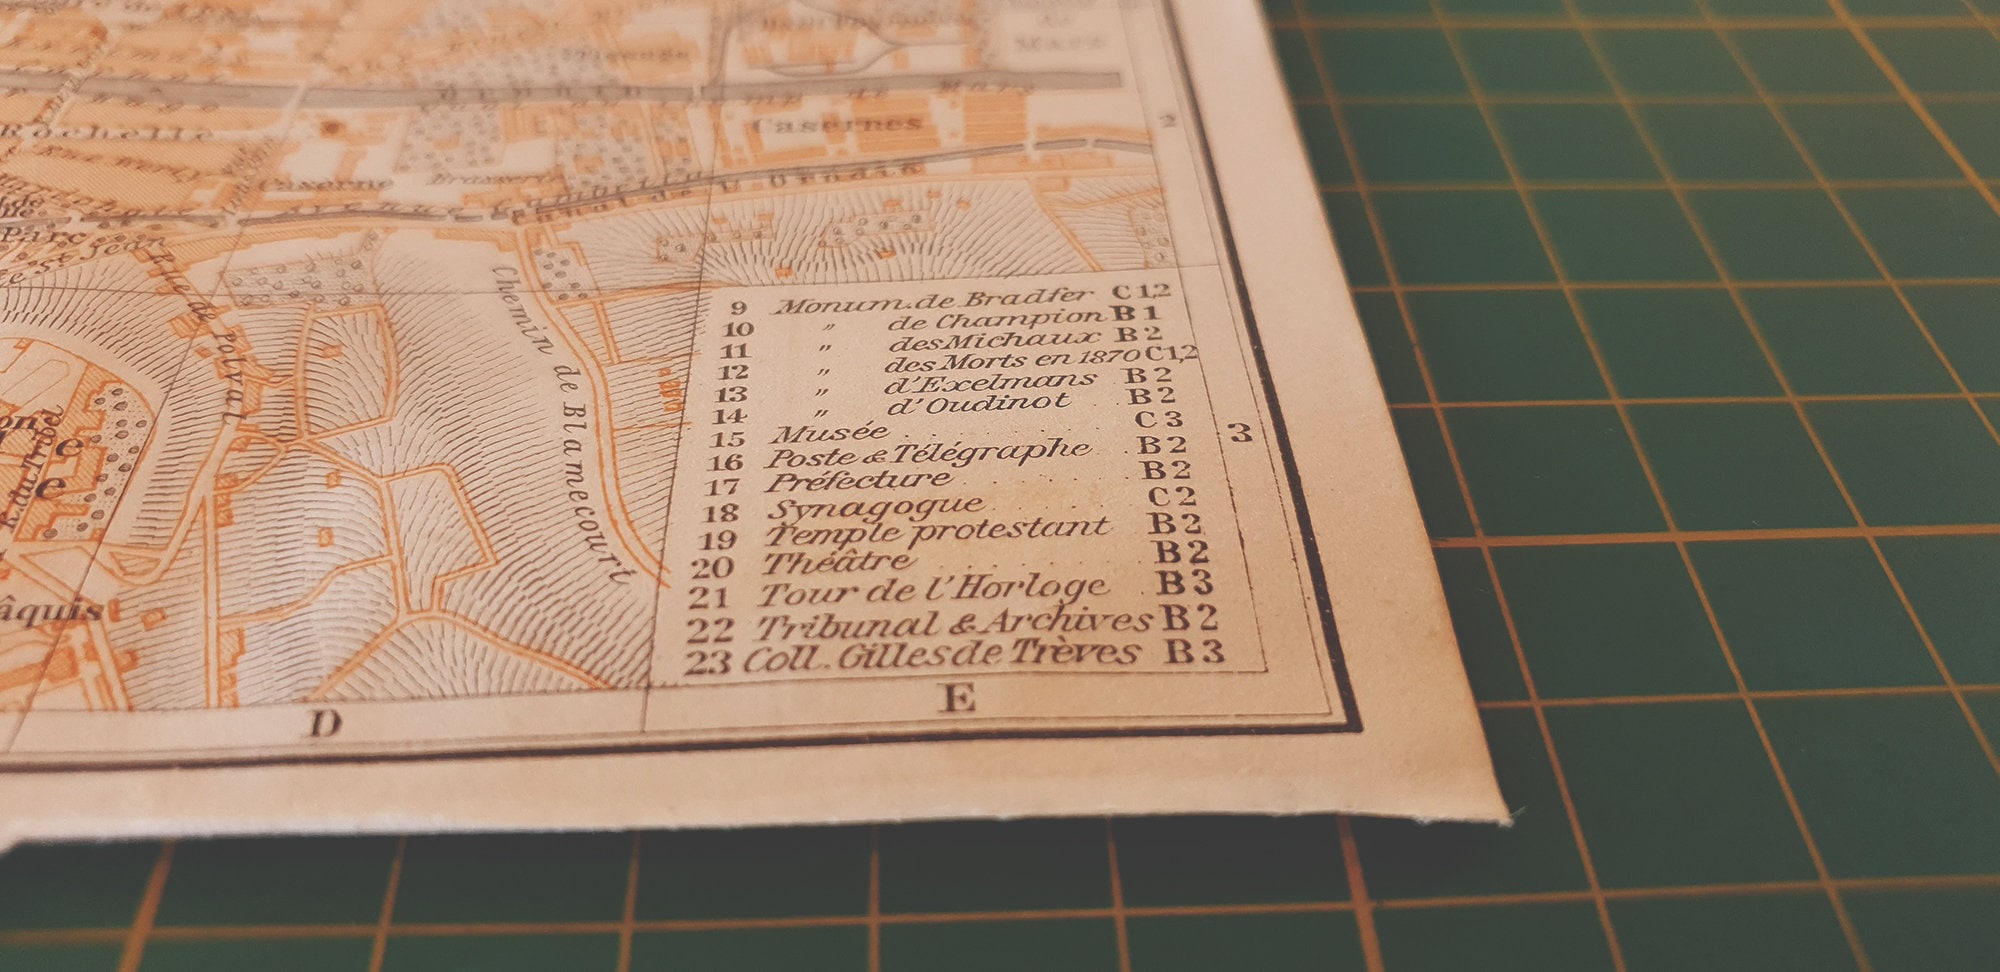 Casernes
2
Rochelle
Caserne
Brasserie
Canal de l'Ornain
Parc
Rue de Polval
Chemin de Blamecourt
R. du Tribel
âquis
9 Monum. de Bradfer C 1,2
10 " de Champion B 1
11 " des Michaux B 2
12 " des Morts en 1870 C 1,2
13 " d'Exelmans B 2
14 " d'Oudinot B 2
15 Musée C 3
16 Poste & Télégraphe B 2
17 Préfecture B 2
18 Synagogue C 2
19 Temple protestant B 2
20 Théâtre B 2
21 Tour de l'Horloge B 3
22 Tribunal & Archives B 2
23 Coll. Gilles de Trèves B 3
3
D
E